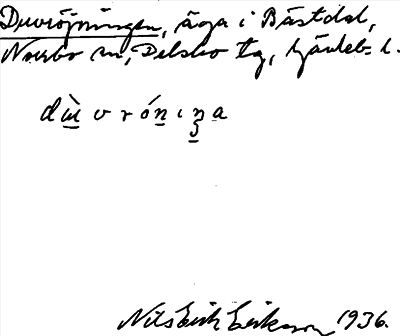 Duvröjningen, äga i Båstdal,
Norrbo sn, Delsbo tg, Gävleb. l.
dùvrónıŋa
Nils Erik Eriksson 1936.